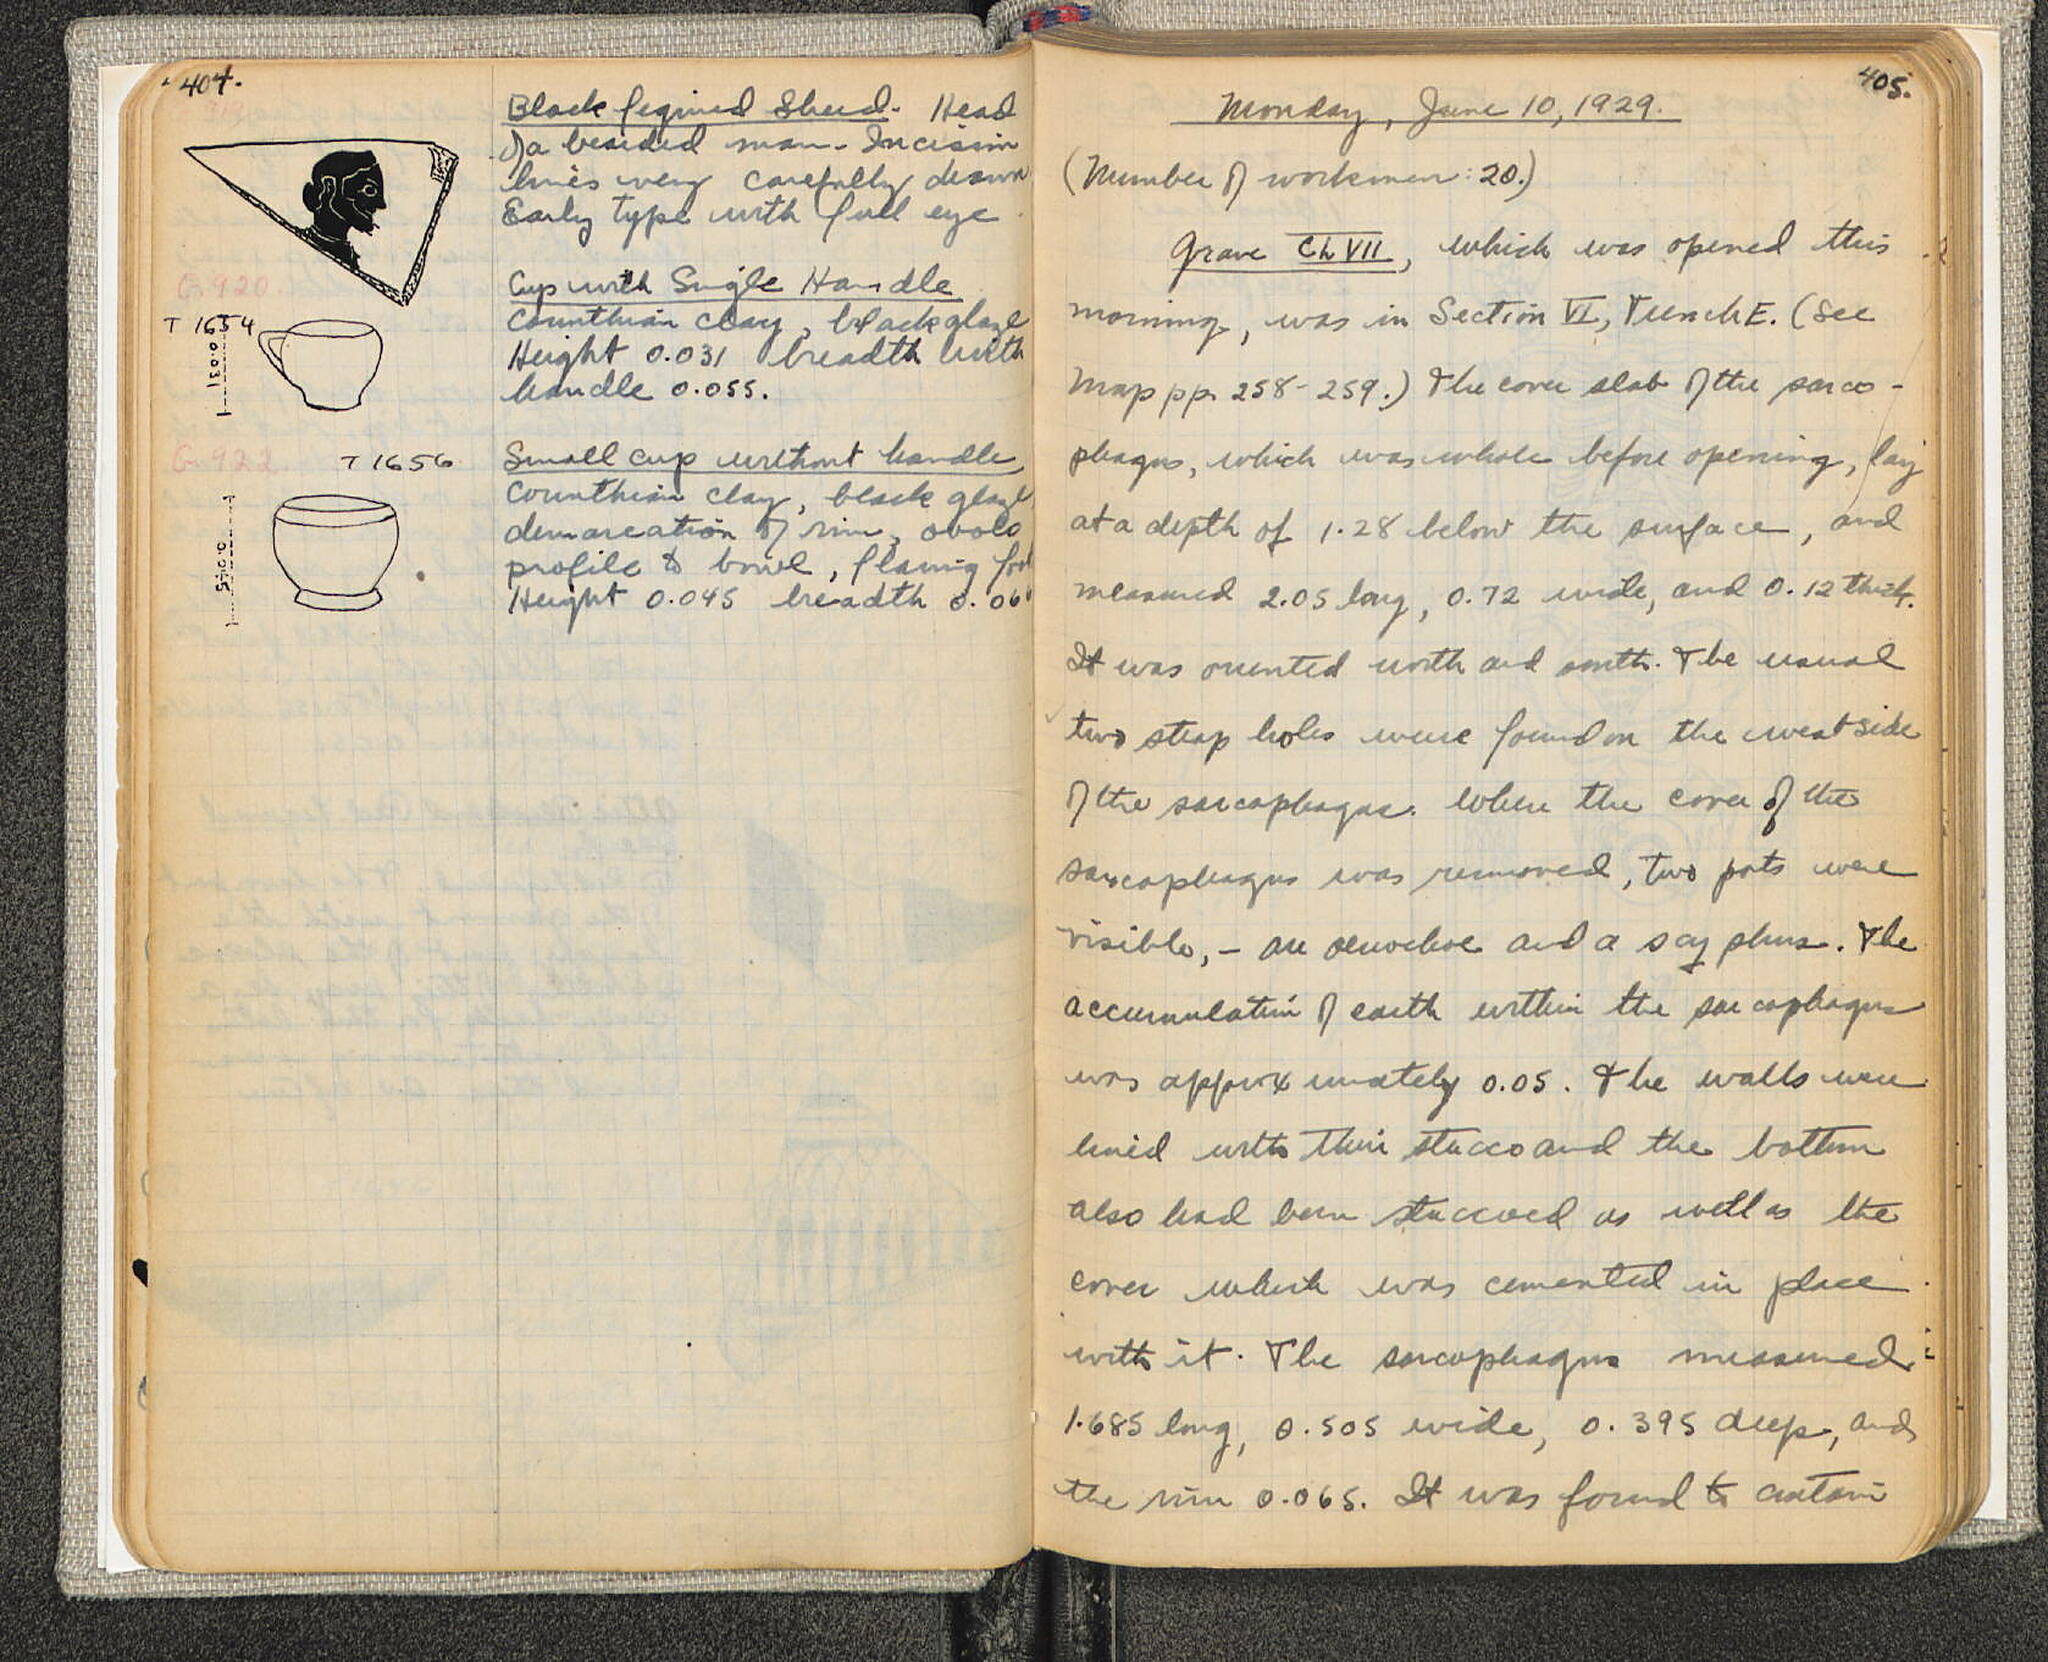 404.
Black figured Sherd. Head
of a bearded man. Incision
lines very carefully drawn
Early type with full eye
G. 920.
T 1654
0.031
Cup with Single Handle
Corinthian clay, black glaze
Height 0.031 breadth with
handle 0.055.
G. 922
T 1656
0.045
Small cup without handle
Corinthian clay, black glaze
demarcation of rim, ovolo
profile to bowl, flaring foot
Height 0.045 breadth 0.06
405.
Monday, June 10, 1929.
(Number of workmen: 20.)
Grave Ch VII, which was opened this
morning, was in Section VI, Trench E. (See
Map pp. 258-259.) The cover slab of the sarco-
phagus, which was whole before opening, lay
at a depth of 1.28 below the surface, and
measured 2.05 long, 0.72 wide, and 0.12 thick.
It was oriented north and south. The usual
two strap holes were found on the west side
of the sarcophagus. When the cover of the
sarcophagus was removed, two pots were
visible, - an oenochoe and a scyphus. The
accumulation of earth within the sarcophagus
was approximately 0.05. The walls were
lined with thin stucco and the bottom
also had been stuccoed as well as the
cover which was cemented in place
with it. The sarcophagus measured:
1.685 long, 0.505 wide, 0.395 deep, and
the rim 0.065. It was found to contain